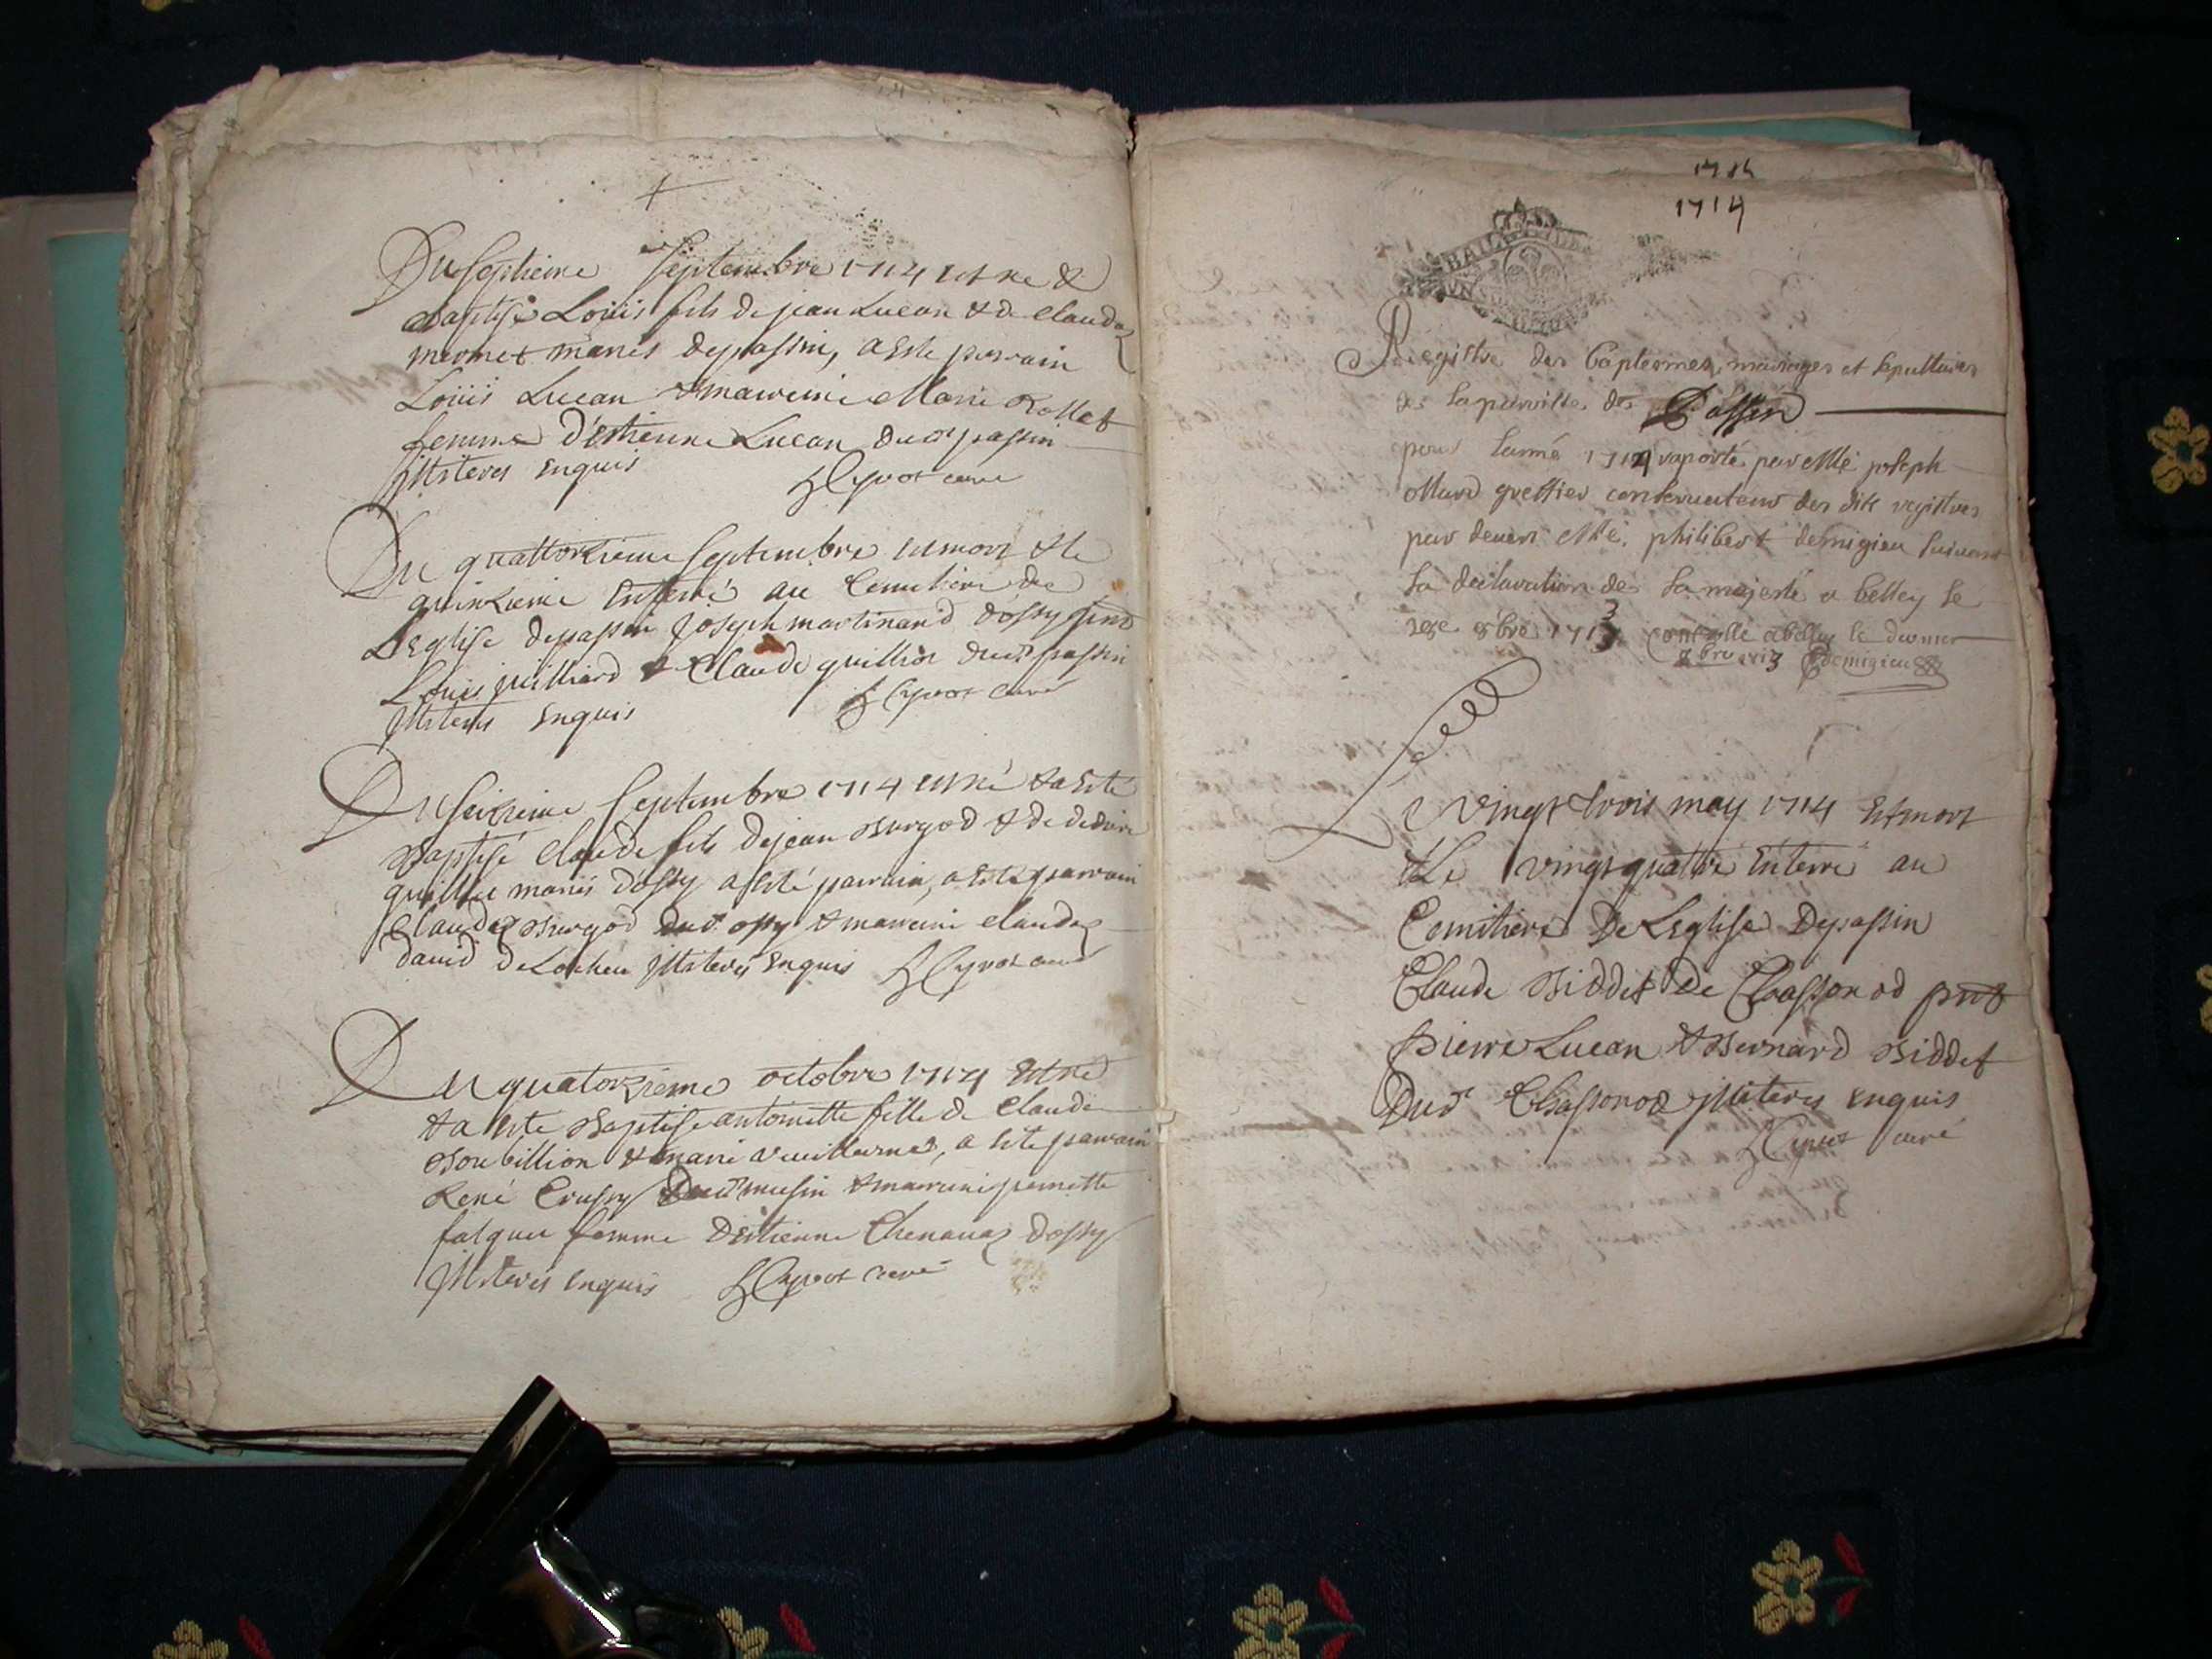 Du septieme Septembre 1714 est né &
baptisé Loüis fils de jean Lucan & de Claudaz
mermet mariés depassin, a este parrain
Loüis Lucan & marreine Marie Rollet
femme d'Estienne Lucan dud passin
Illiterés enquis Cyvot curé
Du quattorzieme Septembre est mort & le
quinzieme Enterré au Cemitiere de
L'Eglise depassin Joseph martinand d'ossy pnts
Louis juilliard & Claude guillot dud passin
Illiterés enquis Cyvot curé
Du seizieme Septembre 1714 est né & a esté
Baptisé Claude fils dejean Burgod & de
mariés d'ossy a esté parrain, a esté parrain
Claude Burgod dud ossy & marreine claudaz
david de Illiterés enquis Cyvot curé
Du quatorzieme octobre 1714 est né
& a esté Baptisé antoinette fille de Claude
Boubillion & marie a esté parrain
René Crussy dud musin & marreine pernette
falque femme d'Estienne Chenavaz d'ossy
Illiterés enquis Cyvot curé
1714
1714
BAIL
Registre des baptesmes, mariages et sepultures
de la parroisse de Passin
pour lanné 1714 raporté par Me joseph
ollard greffier conservateur des dits registres
par devant Me philibert demigieu suivant
la declaration de sa majesté a belley le
8bre 1713 Controllé a belley le dernier
8bre 1713 Demigieu
Le Vingt trois may 1714 Est mort
& Le vingt quattre Enterré au
Cemitiere De L'Eglise Depassin
Claude Biddet de Chassonod pnts
Pierre Lucan & Bernard Biddet
Dud Chassonod Illiterés enquis
Cyvot curé